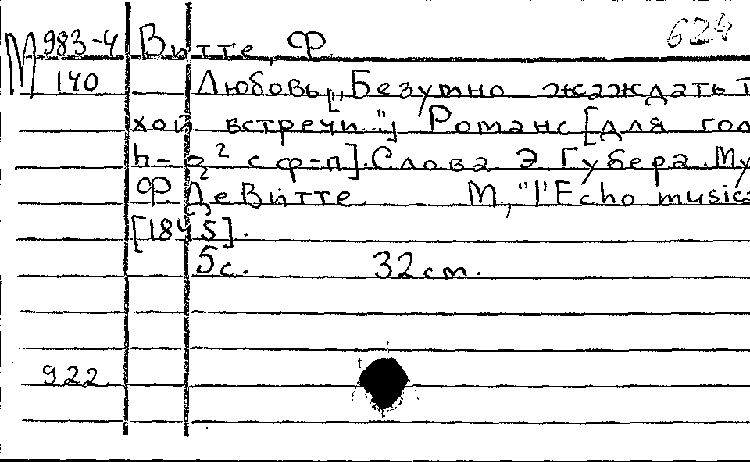 624
М 983-4 Витте, Ф
140 Любовь ["Безумно жаждать т
хой встречи"] Романс [для гол
h-g² с ф-п]. Слова Э. Губера. Му
Ф. Де Витте. М, "l'Echo musica
[1845].
5 с. 32 cm.
922